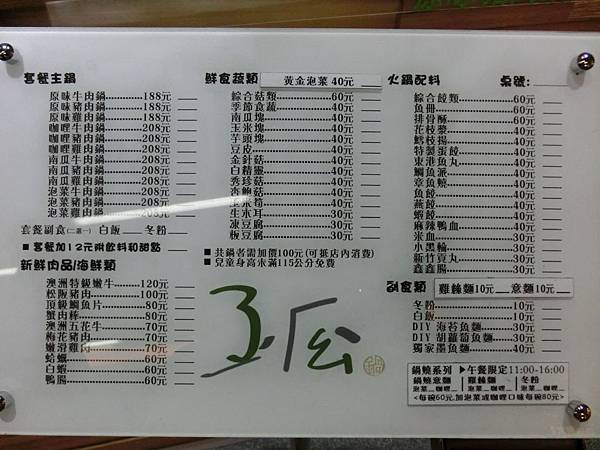 套餐主鍋
原味牛肉鍋 188元
原味豬肉鍋 188元
原味雞肉鍋 188元
咖哩牛肉鍋 208元
咖哩豬肉鍋 208元
咖哩雞肉鍋 208元
南瓜牛肉鍋 208元
南瓜豬肉鍋 208元
南瓜雞肉鍋 208元
泡菜牛肉鍋 208元
泡菜豬肉鍋 208元
泡菜雞肉鍋 208元
套餐副食(二選一) 白飯 冬粉
■ 套餐加12元附飲料和甜點
新鮮肉品/海鮮類
澳洲特級嫩牛 120元
松阪豬肉 100元
頂級鯛魚片 80元
蟹肉棒 80元
澳洲五花牛 70元
梅花豬肉 70元
嫩滑雞肉 70元
蛤蠣 60元
白蝦 60元
鴨腸 60元
鮮食蔬類 黃金泡菜 40元
綜合菇類 60元
季節食蔬 40元
南瓜塊 40元
玉米塊 40元
芋頭塊 40元
豆皮 40元
金針菇 40元
白精靈 40元
秀珍菇 40元
杏鮑菇 40元
玉米筍 40元
生木耳 30元
凍豆腐 30元
板豆腐 30元
■ 共鍋者需加價100元(可抵店內消費)
■ 兒童身高未滿115公分免費
鍋
火鍋配料 桌號:
綜合餃類 60元
魚冊 60元
排骨酥 60元
花枝漿 40元
鱈枝揚 40元
特製蛋餃 40元
東港魚丸 30元
鯛魚派 30元
章魚燒 30元
魚餃 30元
燕餃 30元
蝦餃 30元
麻辣鴨血 30元
米血 30元
小黑輪 30元
新竹貢丸 30元
鑫鑫腸 30元
副食類 雞絲麵10元 意麵10元
冬粉 10元
白飯 10元
DIY 海苔魚麵 30元
DIY 胡蘿蔔魚麵 30元
獨家墨魚麵 30元
鍋燒系列 ▶午餐限定11:00-16:00
鍋燒意麵 雞絲麵 冬粉
泡菜 咖哩 泡菜 咖哩 泡菜 咖哩
<每碗60元,加泡菜或咖哩口味每碗80元>